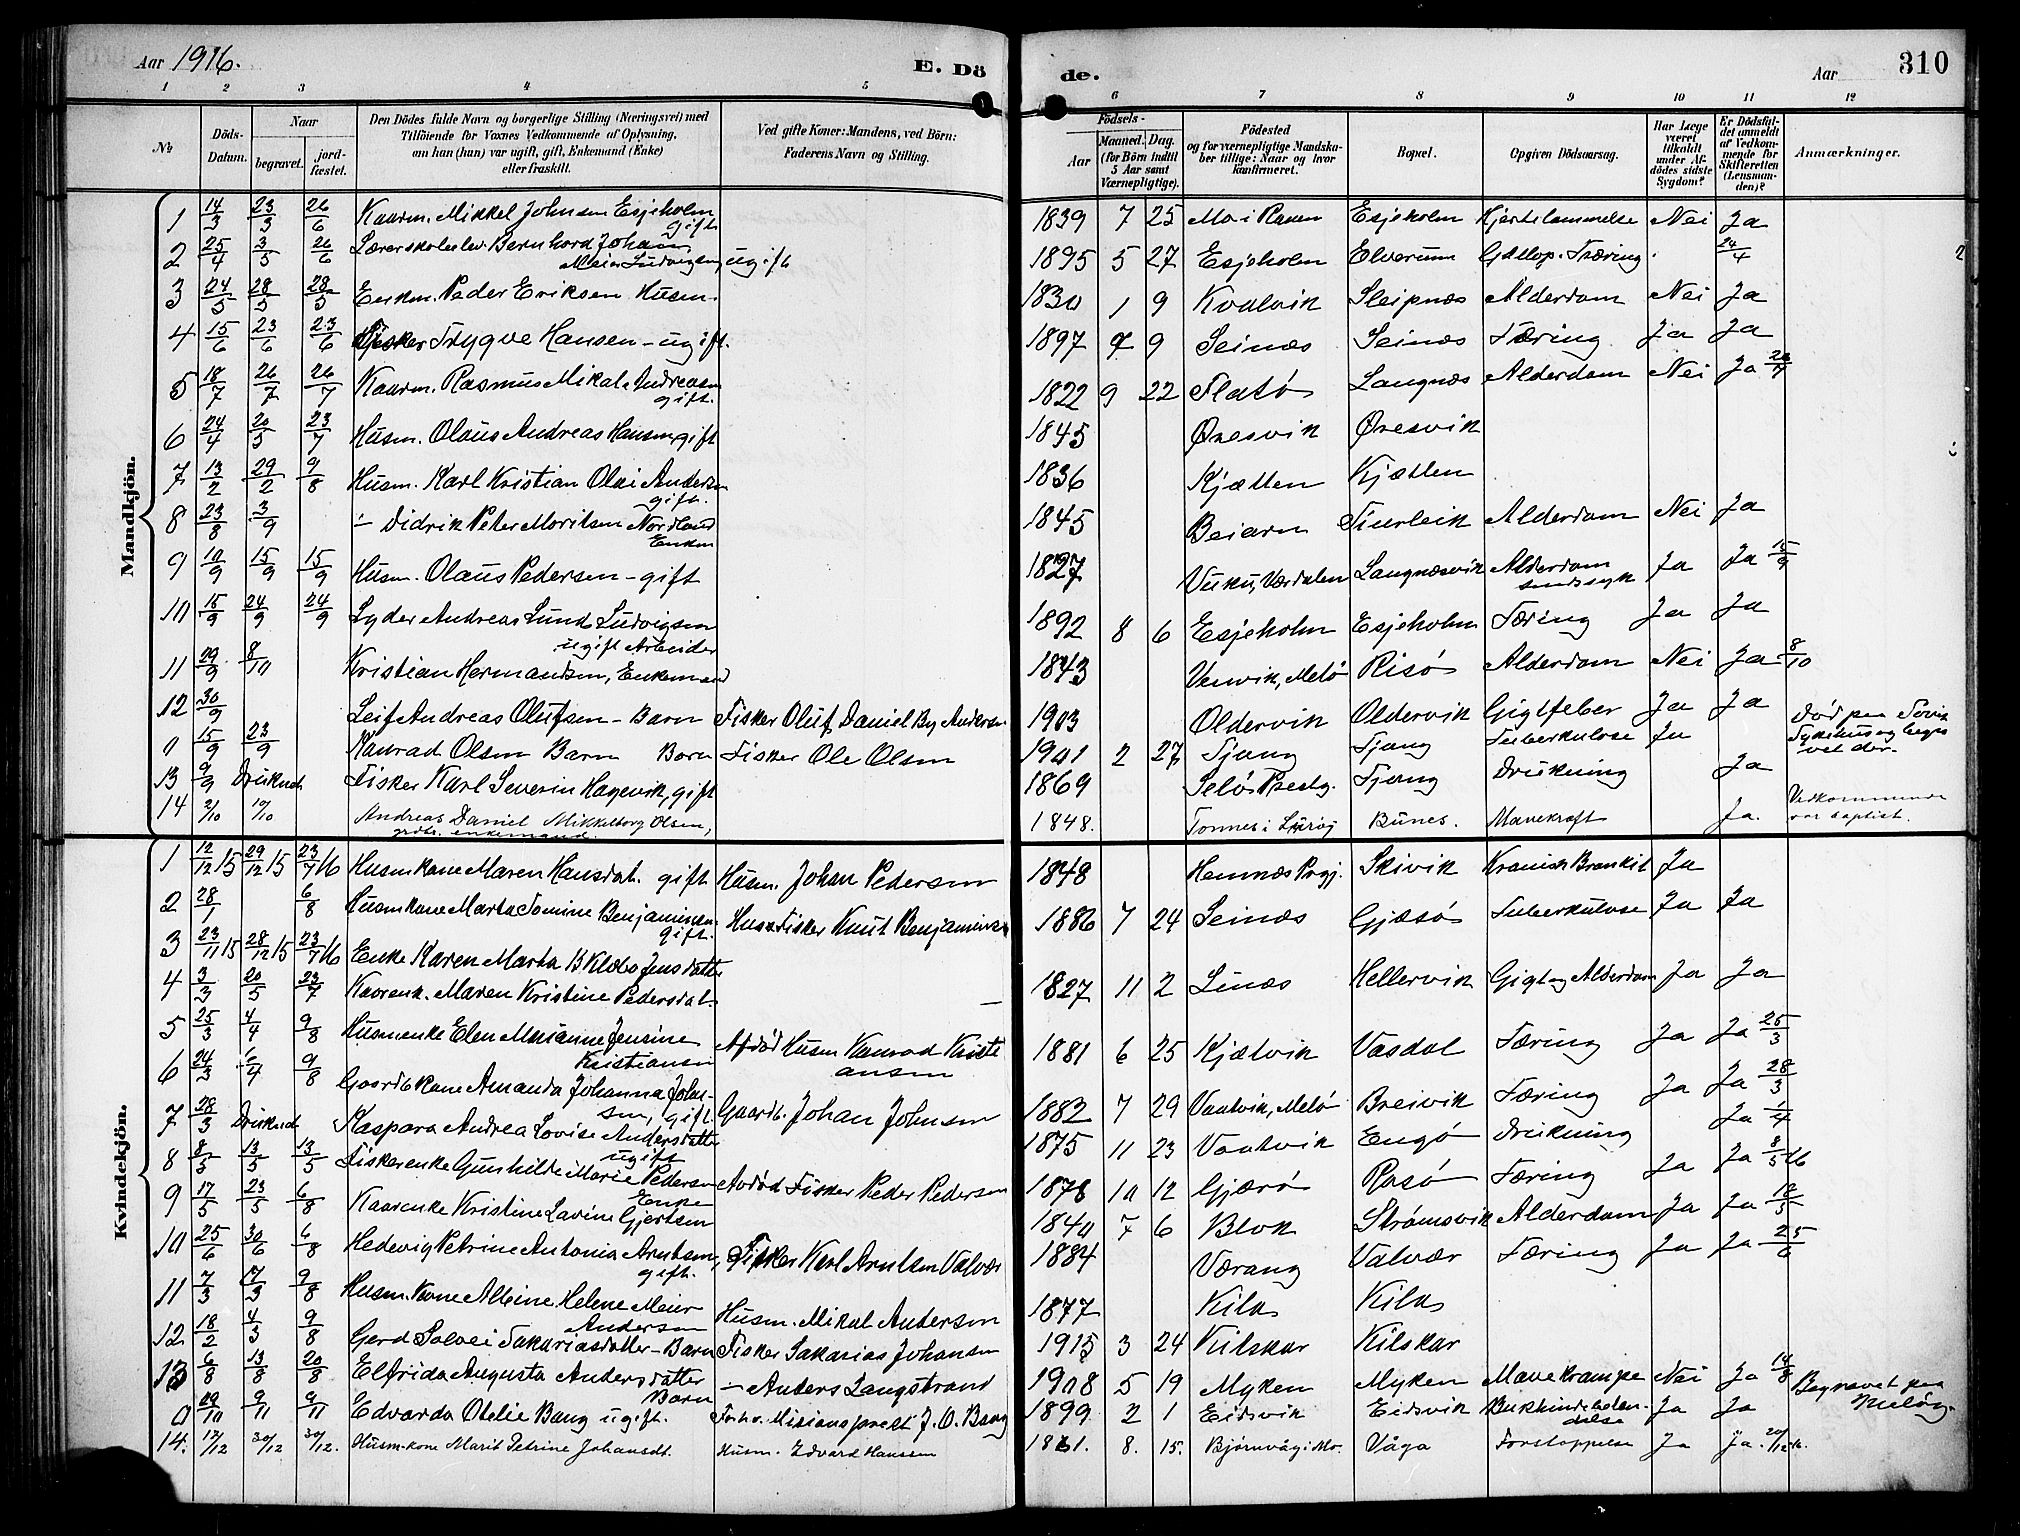 Aar 1916.
E. Döde.
Aar
310
1 2 3 4 5 6 7 8 9 10 11 12
№
Döds-Datum.
Naar
begravet.
jordfæstet.
Den Dödes fulde Navn og borgerlige Stilling (Næringsvei) med Tilföiende for Voxnes Vedkommende af Oplysning, om han (hun) var ugift, gift, Enkemand (Enke) eller fraskilt.
Ved gifte Koner: Mandens, ved Börn: Faderens Navn og Stilling.
Födsels-
Aar
Maaned. Dag.
(for Börn indtil 5 Aar samt Værnepligtige).
Födested og for værnepligtige Mandskaber tillige: Naar og hvor konfirmeret.
Bopæl.
Opgiven Dödsaarsag.
Har Læge været tilkaldt under Afdödes sidste Sygdom?
Er Dödsfaldet anmeldt af Vedkommende for Skifteretten (Lensmanden)?
Anmærkninger.
Mandkjön.
1 14/3 23/3 26/6 Kaarm. Mikkel Johnsen Esjeholm gift 1839 7 25 Mo i Ranen Esjeholm Hjertelammelse Nei Ja
2 25/4 3/5 26/6 Lærerskoleelev Bernhard Johan Meier Ludvigsen, ugift 1895 5 27 Esjeholm Elverum Gallop. Tæring. 24/4
3 24/5 28/5 28/5 Enkm. Peder Eriksen Husm. 1830 1 9 Kvalvik Sleipnæs Alderdom Nei Ja
4 15/6 23/6 23/6 Fisker Trygve Hansen - ugift. 1897 9 Seinæs Seinæs Tæring Ja Ja
5 18/7 26/7 26/7 Kaarm. Rasmus Mikal Andreasen gift. 1822 9 22 Flatö Langnæs Alderdom Nei Ja
6 24/4 20/5 23/7 Husm. Olaus Andreas Hansen gift 1845 Øresvik Øresvik
7 13/2 29/2 9/8 Husm. Karl Kristian Olai Andersen gift. 1836 Kjætten Kjætten
8 23/8 3/9 - Didrik Peter Moritsen Nordland Enkm 1845 Beiarn Alderdom Nei Ja
9 10/9 15/9 15/9 Husm. Olaus Pedersen - gift 1827 Vuku, Værdalen Langnæsvik Alderdom sindssyk Ja Ja 15/9
10 15/9 24/9 24/9 Lyder Andreas Lund Ludvigsen ugift Arbeider 1892 8 6 Esjeholm Esjeholm Tæring Ja Ja
11 29/9 8/11 Kristian Hermandsen, Enkemand 1843 Melö Risö Alderdom Nei Ja 8/10
12 30/9 Leif Andreas Olufsen - Barn Fisker Oluf Daniel By Andersen 1903 Oldervik Oldervik Gigtfeber Ja Ja
0 15/9 23/9 Konrad Olsen Barn Barn Fisker Ole Olsen 1901 2 27 Tjong Tjong Tuberkulose Ja
Død paa Sykehus og begravet der.
13 9/9 Druknet Fisker Karl Severin Hagevik, gift 1869 Selö Prestg. Tjong Drukning Ja
14 2/10 10/10 Andreas Daniel Mikkelborg Olsen, grdbr. enkemand. 1848. Tonnes i Lurøy Bunes. Mavekræft Ja. Vedkommende var baptist.
Kvindekjön.
1 12/12 15 29/12 15 23/7 16 Husmkone Maren Hansdat. gift Husm. Johan Pedersen 1848 Hemnæs Prgj. Skivik Kronisk Bronkit Ja
2 28/1 6/8 Husmkone Marta Tomine Benjaminsen gift. Fisker Knut Benjaminsen 1886 7 24 Seinæs Gjæsö Tuberkulose Ja Ja
3 23/11 15 28/12 15 23/7 16 Enke Karen Marta B Klæbo Jensdatter
4 3/3 20/5 23/7 Kaarenk. Maren Kristine Pedersdat. — 1827 11 2 Hellervik Gigt og Alderdom Ja Ja
5 25/3 4/4 9/8 Husmenke Elen Marianne Jensine Kristiansen Afdöd Husm Konrad Kristiansen 1881 6 25 Kjælvik Vasdal Tæring Ja Ja 25/3
6 24/3 9/8 Gaardbkone Amanda Johanna Johnsen, gift. Gaardb. Johan Johnsen 1882 7 29 Melö Breivik Tæring Ja Ja 28/3
7 28/3 Druknet Kaspara Andrea Lovise Andersdatter ugift 1875 11 23 Engö Drukning Ja 1/4
8 8/5 13/5 13/5 Fiskerenke Gunhilde Marie Pedersen Enke Avdöd Fisker Peder Pedersen 1878 10 12 Gjærö Rosö Tæring Ja Ja 8/5 16
9 17/5 23/5 6/8 Kaarenke Kristine Lavine Gjertsen 1840 7 6 Blok Strömsvik Alderdom Ja Ja
10 25/6 30/6 6/8 Hedevig Petrine Antonia Arntsen, gift. Fisker Karl Arntsen Valvær 1884 Værang Valvær Tæring Ja Ja 25/6
11 7/3 17/3 9/8 Husm. Kone Albine Helene Meier Andersen Husm. Mikal Andersen 1877 Kila Kila
12 18/2 4/3 9/8 Gerd Solvei Sakariasdatter - Barn Fisker Sakarias Johansen 1915 3 24 Kilskar Kilskar
13 6/8 13/8 20/8 Elfrida Augusta Andersdatter Barn - Anders Langstrand 1908 5 19 Myken Myken Mavekrampe Nei Ja 14/8
0 29/10 9/11 9/11 Edvarda Otelie Bang ugift. Misionsprest J. O. Bang 1899 2 1 Eidsvik Eidsvik Bukhindebetændelse Ja Ja
Begravet paa
14. 12/12 30/12 30/12. Husm. kone Marit Petrine Johansdt. Husm. Edvard Hanssen 1861. 8. 15. Bjørnvåg i Mo. Våga Forstoppelse Ja Ja.